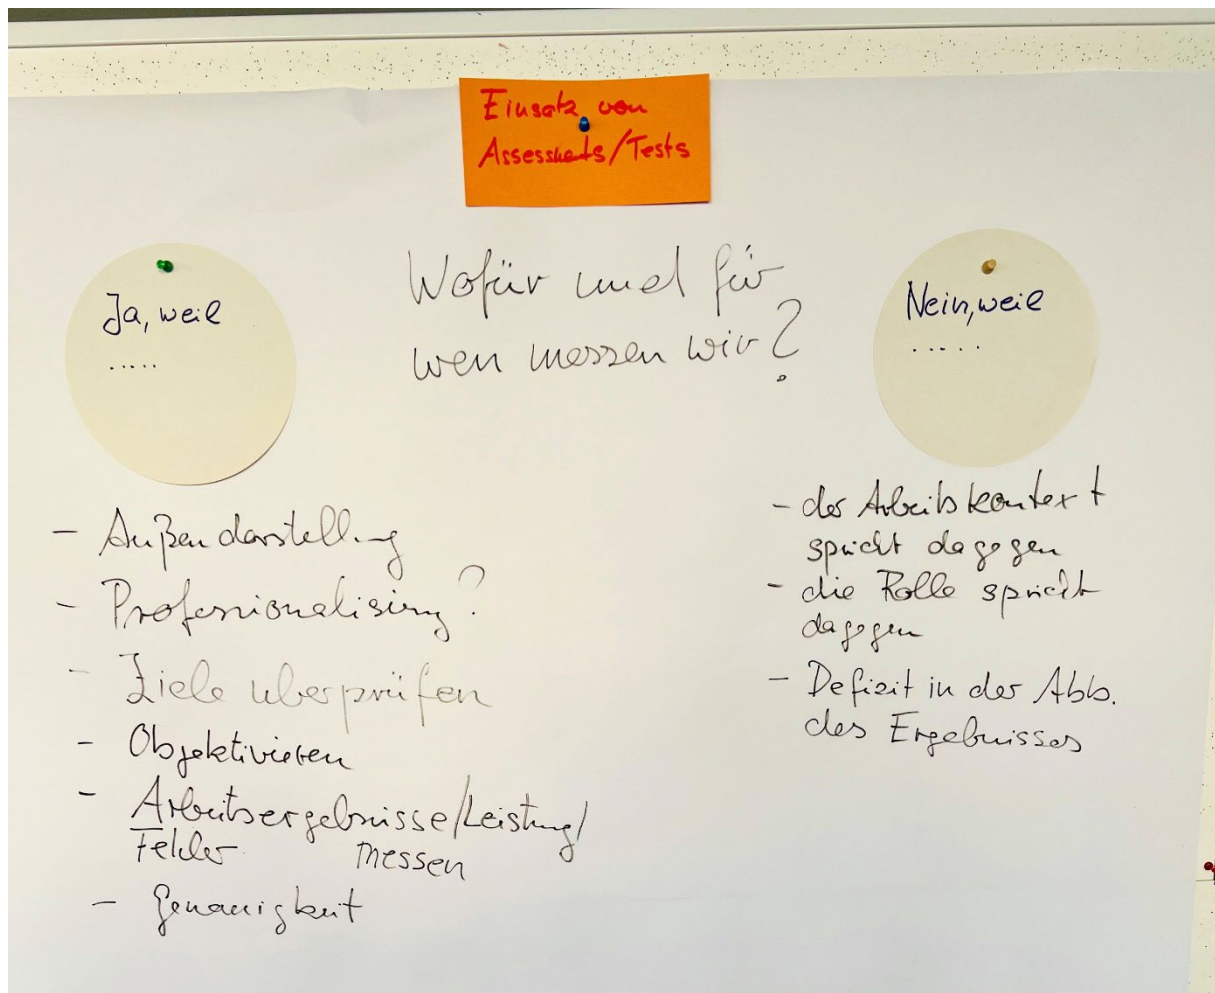 Einsatz von
Assessments/Tests
Wofür und für
wen messen wir?
Ja, weil
.....
- Außendarstellung
- Professionalisierung?
- Ziele überprüfen
- Objektivieren
- Arbeitsergebnisse/Leistung/
Fehler messen
- Genauigkeit
Nein, weil
.....
- der Arbeitskontext
spricht dagegen
- die Rolle spricht
dagegen
- Defizit in der Abb.
des Ergebnisses